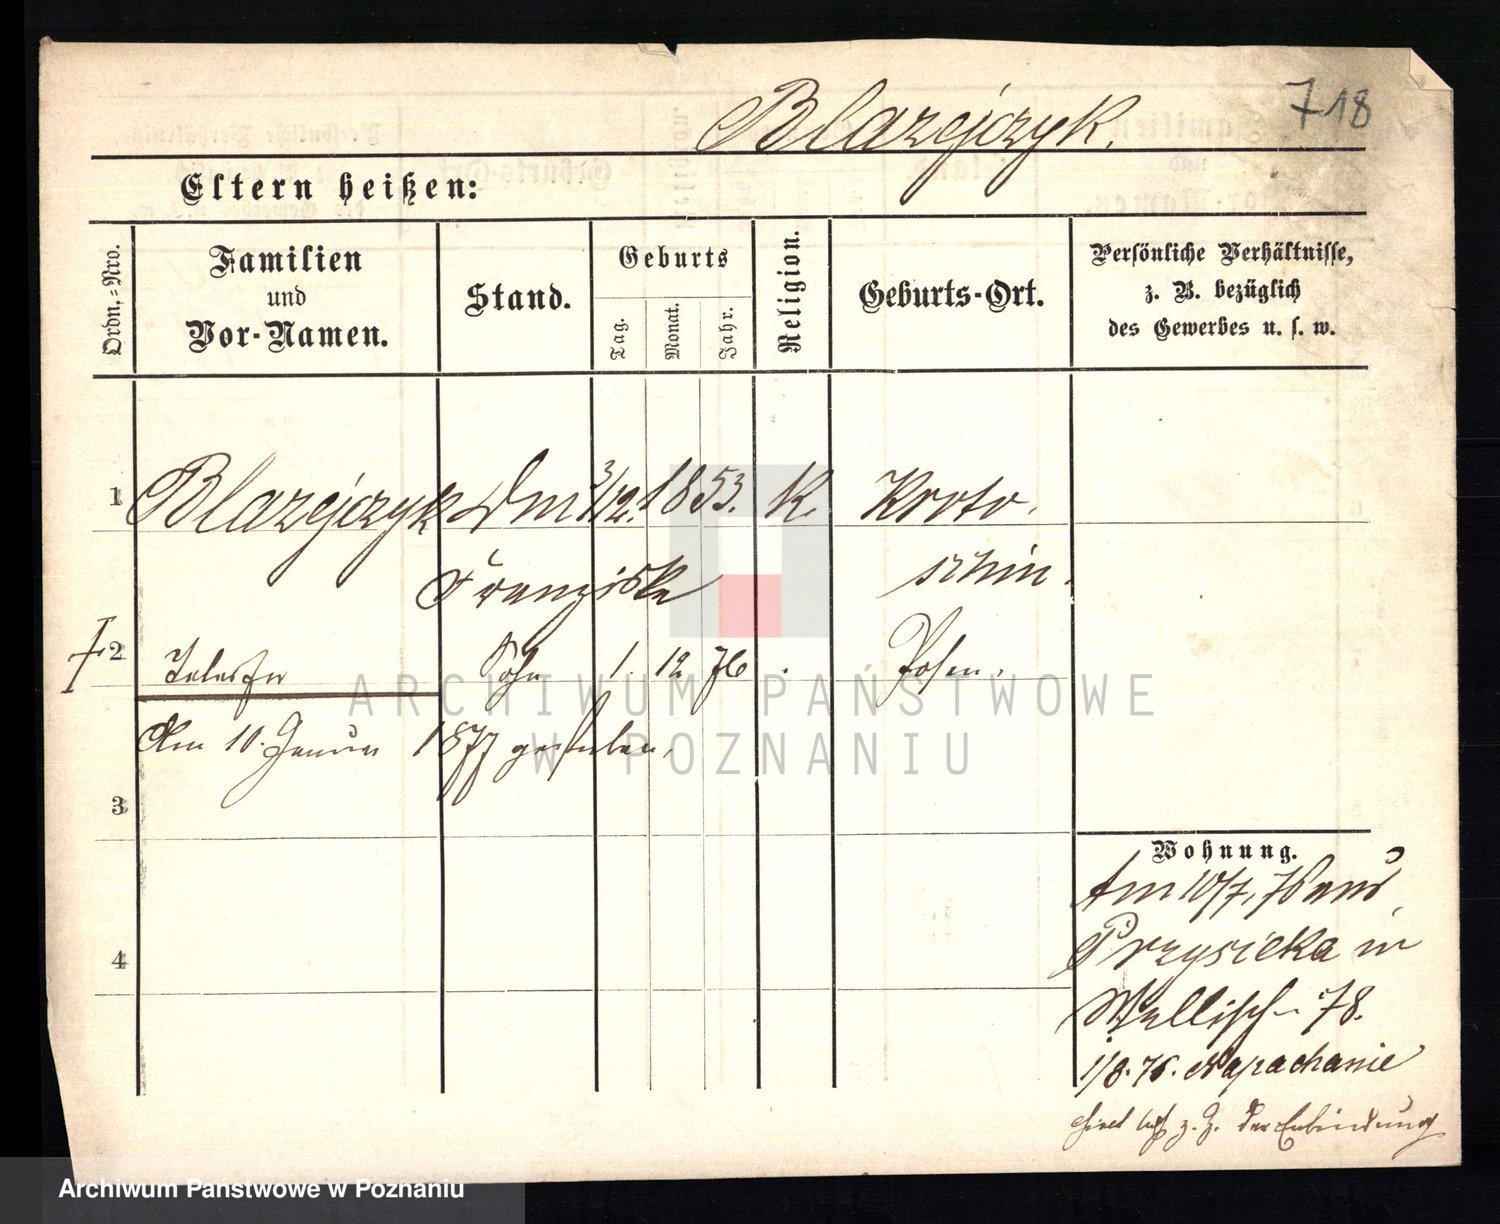 718
Blazejczyk.
Eltern heißen:
Ordn.-Nro.
Familien
und
Vor-Namen.
Stand.
Geburts
Tag. Monat. Jahr.
Religion.
Geburts-Ort.
Persönliche Verhältnisse,
z. B. bezüglich
des Gewerbes u. s. w.
1 Blazejczyk 3/12. 1853. K. Kroto.
Franziska schin.
2 Sohn 1. 12 76 Posen.
Am 10. Januar 1877 gestorben.
3
4
Wohnung.
Am 10/7. 76 aus
Przysieka in
Wallisch. 78.
1/8. 76. Napachanie
z. Z. der Enbindung
ARCHIWUM PAŃSTWOWE
W POZNANIU
Archiwum Państwowe w Poznaniu